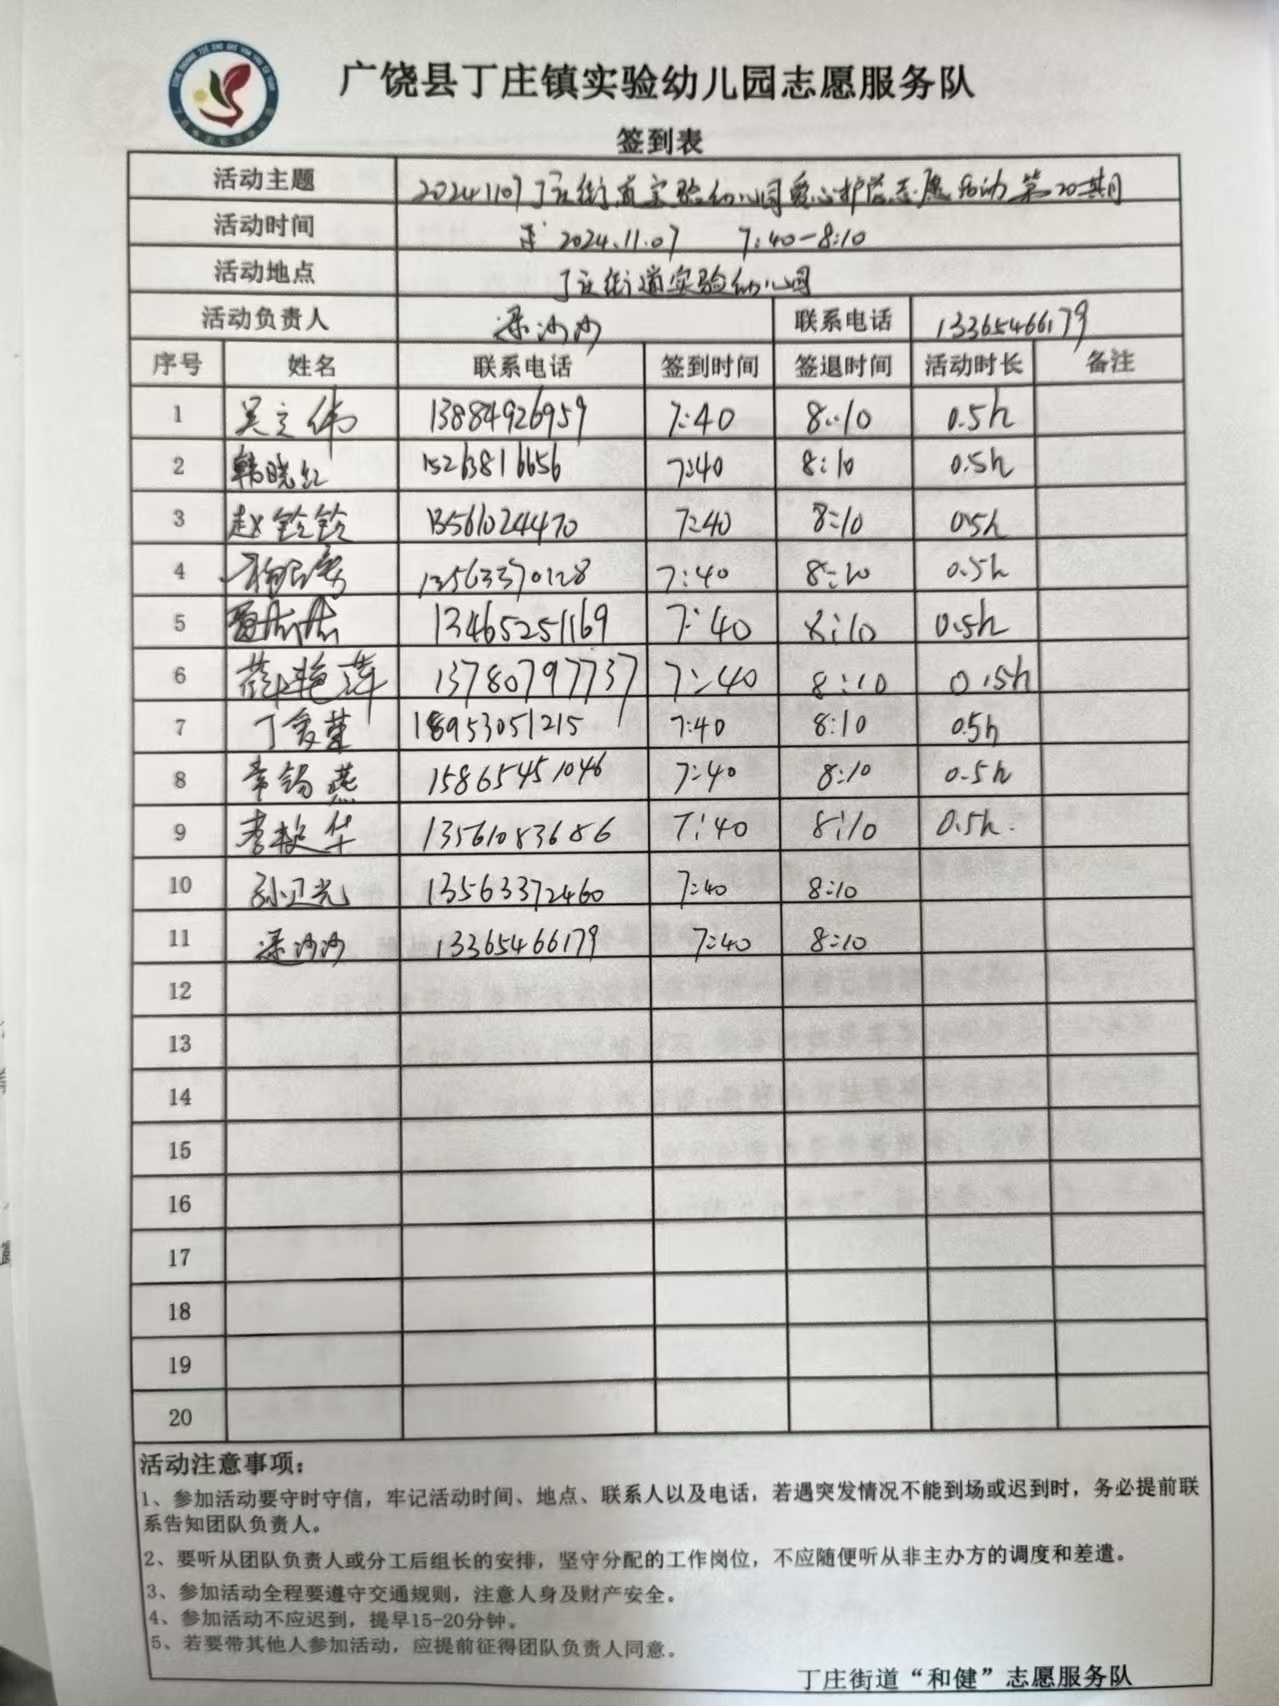 广饶县丁庄镇实验幼儿园志愿服务队
签到表
活动主题 20241107丁庄街道实验幼儿园爱心护学志愿活动第20期
活动时间 2024.11.07 7:40-8:10
活动地点 丁庄街道实验幼儿园
活动负责人 梁沙沙 联系电话 13365466179
序号 姓名 联系电话 签到时间 签退时间 活动时长 备注
1 吴立伟 13884926959 7:40 8:10 0.5h
2 韩晓红 15263816656 7:40 8:10 0.5h
3 赵铃铃 13561024470 7:40 8:10 0.5h
4 13563370128 7:40 8:10 0.5h
5 13465251169 7:40 8:10 0.5h
6 薛艳萍 13780797737 7:40 8:10 0.5h
7 丁爱莲 18953051215 7:40 8:10 0.5h
8 常锡燕 15865451046 7:40 8:10 0.5h
9 李敏华 13561083686 7:40 8:10 0.5h.
10 孙卫光 13563372460 7:40 8:10
11 梁沙沙 13365466179 7:40 8:10
12
13
14
15
16
17
18
19
20
活动注意事项：
1、参加活动要守时守信，牢记活动时间、地点、联系人以及电话，若遇突发情况不能到场或迟到时，务必提前联
系告知团队负责人。
2、要听从团队负责人或分工后组长的安排，坚守分配的工作岗位，不应随便听从非主办方的调度和差遣。
3、参加活动全程要遵守交通规则，注意人身及财产安全。
4、参加活动不应迟到，提早15-20分钟。
5、若要带其他人参加活动，应提前征得团队负责人同意。
丁庄街道“和健”志愿服务队